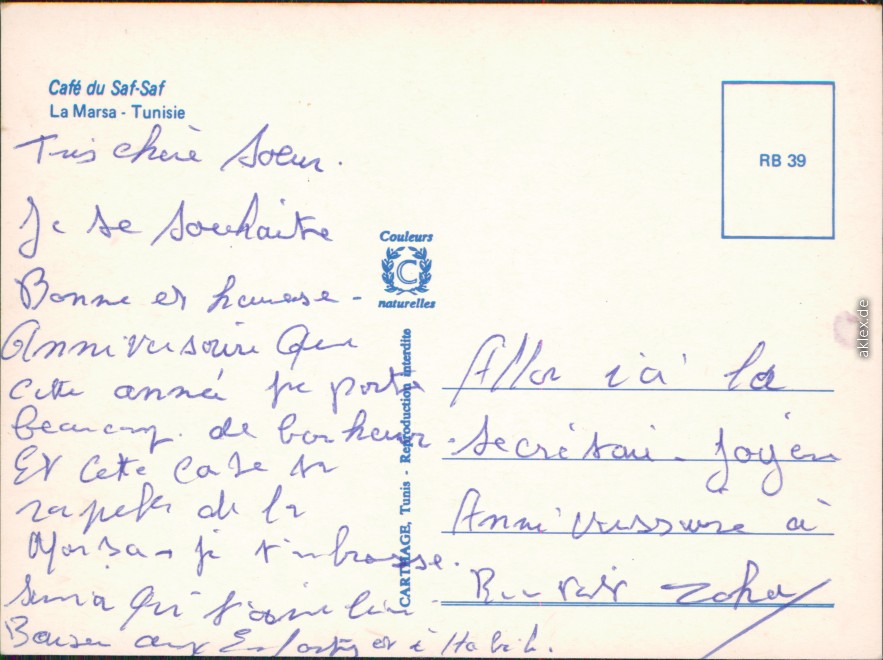 Café du Saf-Saf
La Marsa - Tunisie
RB 39
Très chère Soeur.
Je te souhaite
Bonne et heureuse -
Anniversaire Que
Cette année te porte
beaucoup de bonheur.
Et Cette Carte te
rapelle de la
Marsa - je t'embrasse.
Samia Qui t'aime bien.
Baiser aux Enfants et à Habib.
Couleurs
C
naturelles
CARTHAGE, Tunis - Reproduction interdite
Allo ici la
secrétai - Joyeu
Anniverssaire à
zoha
aklex.de